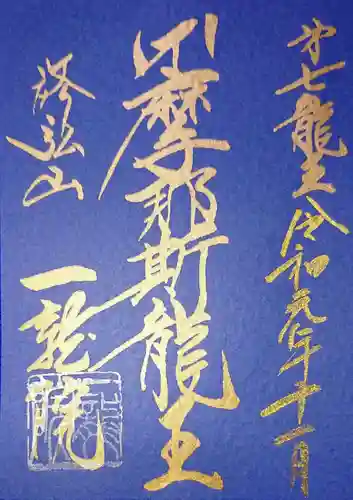 第七龍王
令和元年十一月
摩那斯龍王
山
一龍院